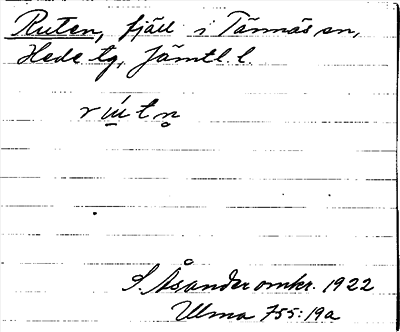 Ruten, fjäll i Tännäs sn,
Hede tg, Jämtl. l.
rútn̥
S. Åsander omkr. 1922
Ulma 755:19a